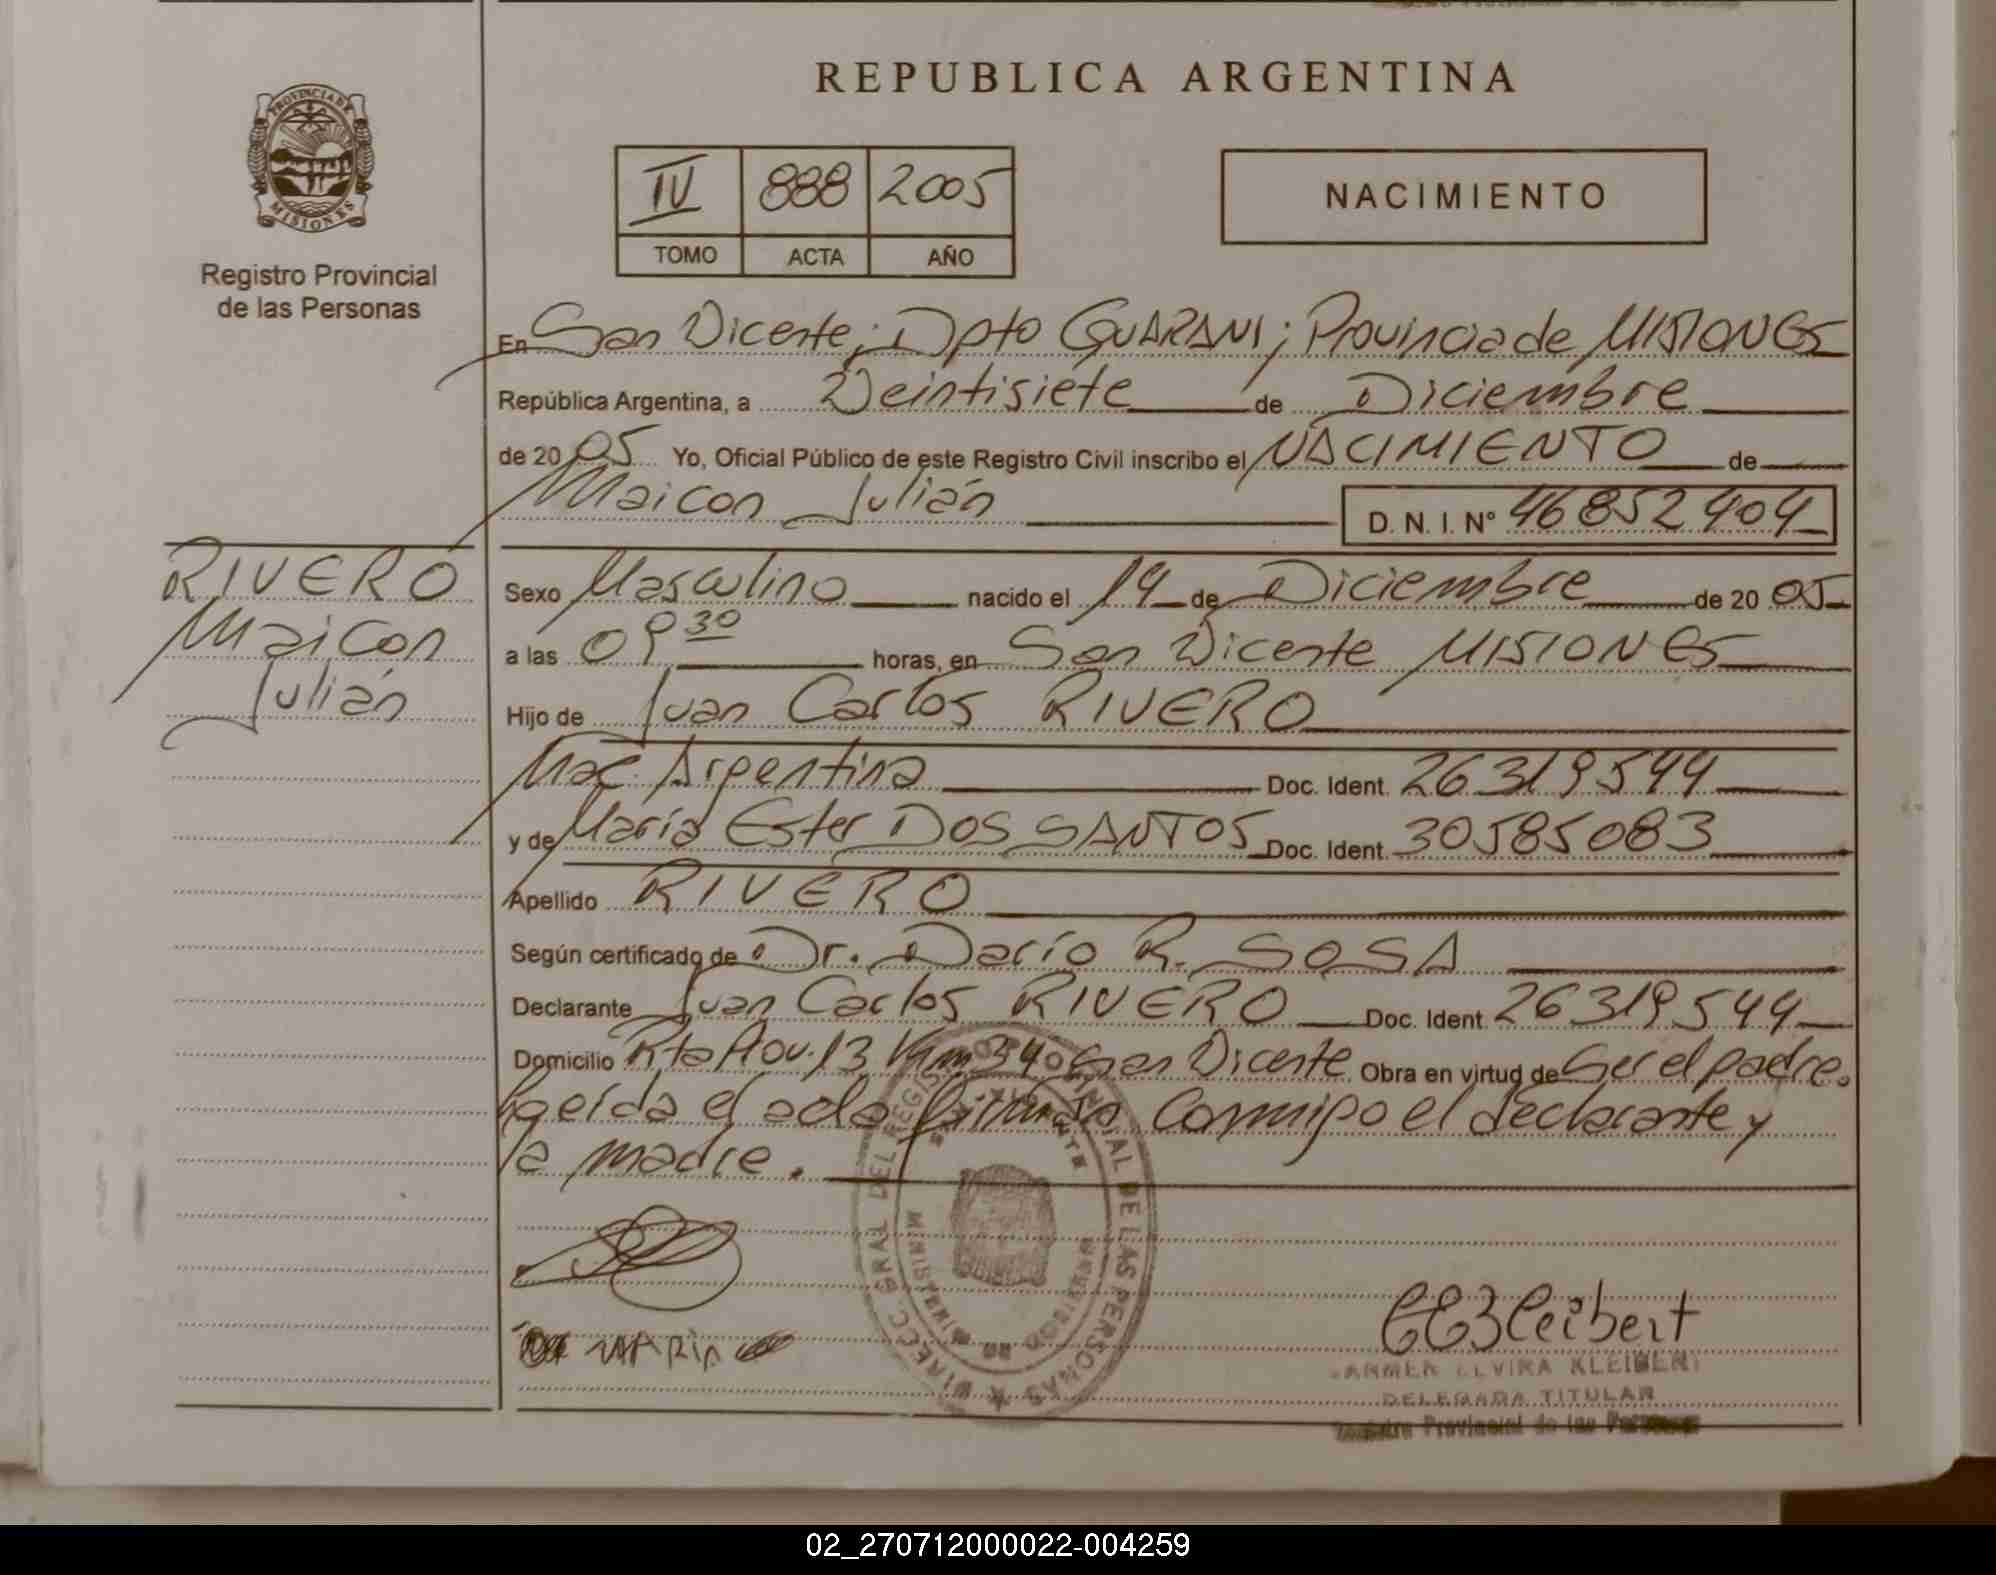 REPUBLICA ARGENTINA
PROVINCIA DE
MISIONES
Registro Provincial
de las Personas
IV 888 2005
TOMO ACTA AÑO
NACIMIENTO
En San Vicente; Dpto GUARANI; Provincia de MISIONES
República Argentina, a Veintisiete de Diciembre
de 2005 Yo, Oficial Público de este Registro Civil inscribo el NACIMIENTO de
Maicon Julián D. N. I. N° 46852404
RIVERO
Maicon
Julián
Sexo Masculino nacido el 14 de Diciembre de 2005
a las 09 30 horas, en San Vicente MISIONES
Hijo de Juan Carlos RIVERO
Nac. Argentina Doc. Ident. 26319544
y de María Ester DOS SANTOS Doc. Ident. 30585083
Apellido RIVERO
Según certificado de Dr. Darío R. SOSA
Declarante Juan Carlos RIVERO Doc. Ident. 26319544
Domicilio Rta Prov. 13 Km 34 San Vicente Obra en virtud de Ser el padre.
Leída el acta firman Conmigo el declarante y
la madre.
DIRECC. GRAL DEL REGISTRO PROVINCIAL DE LAS PERSONAS
MINISTERIO DE GOBIERNO
CARMEN ELVIRA KLEIBERT
DELEGADA TITULAR
Registro Provincial de las Personas
02_270712000022-004259